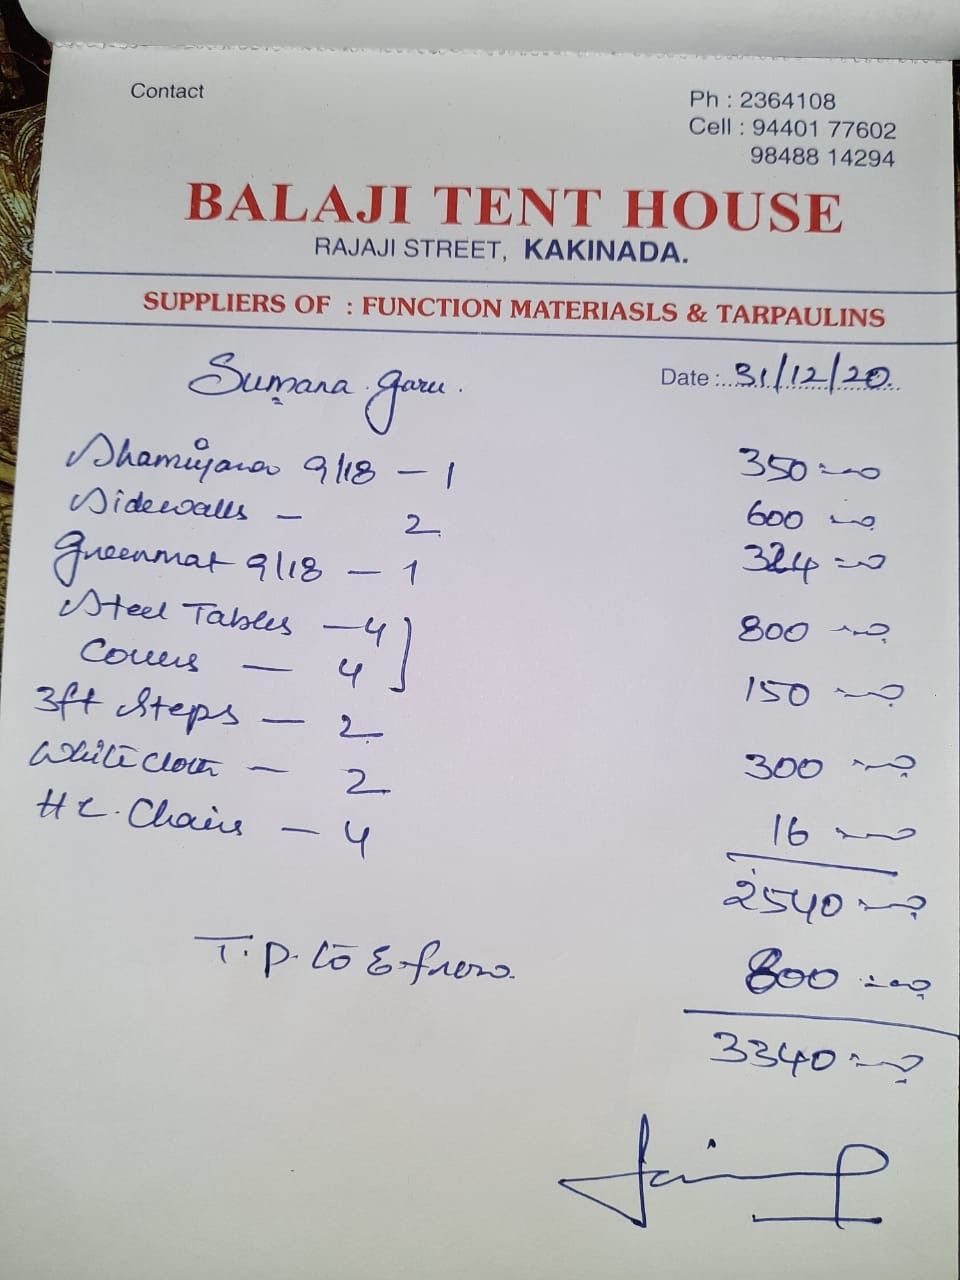 Contact
Ph : 2364108
Cell : 94401 77602
98488 14294
BALAJI TENT HOUSE
RAJAJI STREET, KAKINADA.
SUPPLIERS OF : FUNCTION MATERIASLS & TARPAULINS
Sumana garu.
Date : 31/12/20
Shamiyana 9/18 - 1 350
Sidewalls - 2 600
Greenmat 9/18 - 1 324
Steel Tables - 4 800
Covers - 4
3ft Steps - 2 150
White Cloth - 2 300
H C. Chairs - 4 16
2540
T.P. to & fro 800
3340